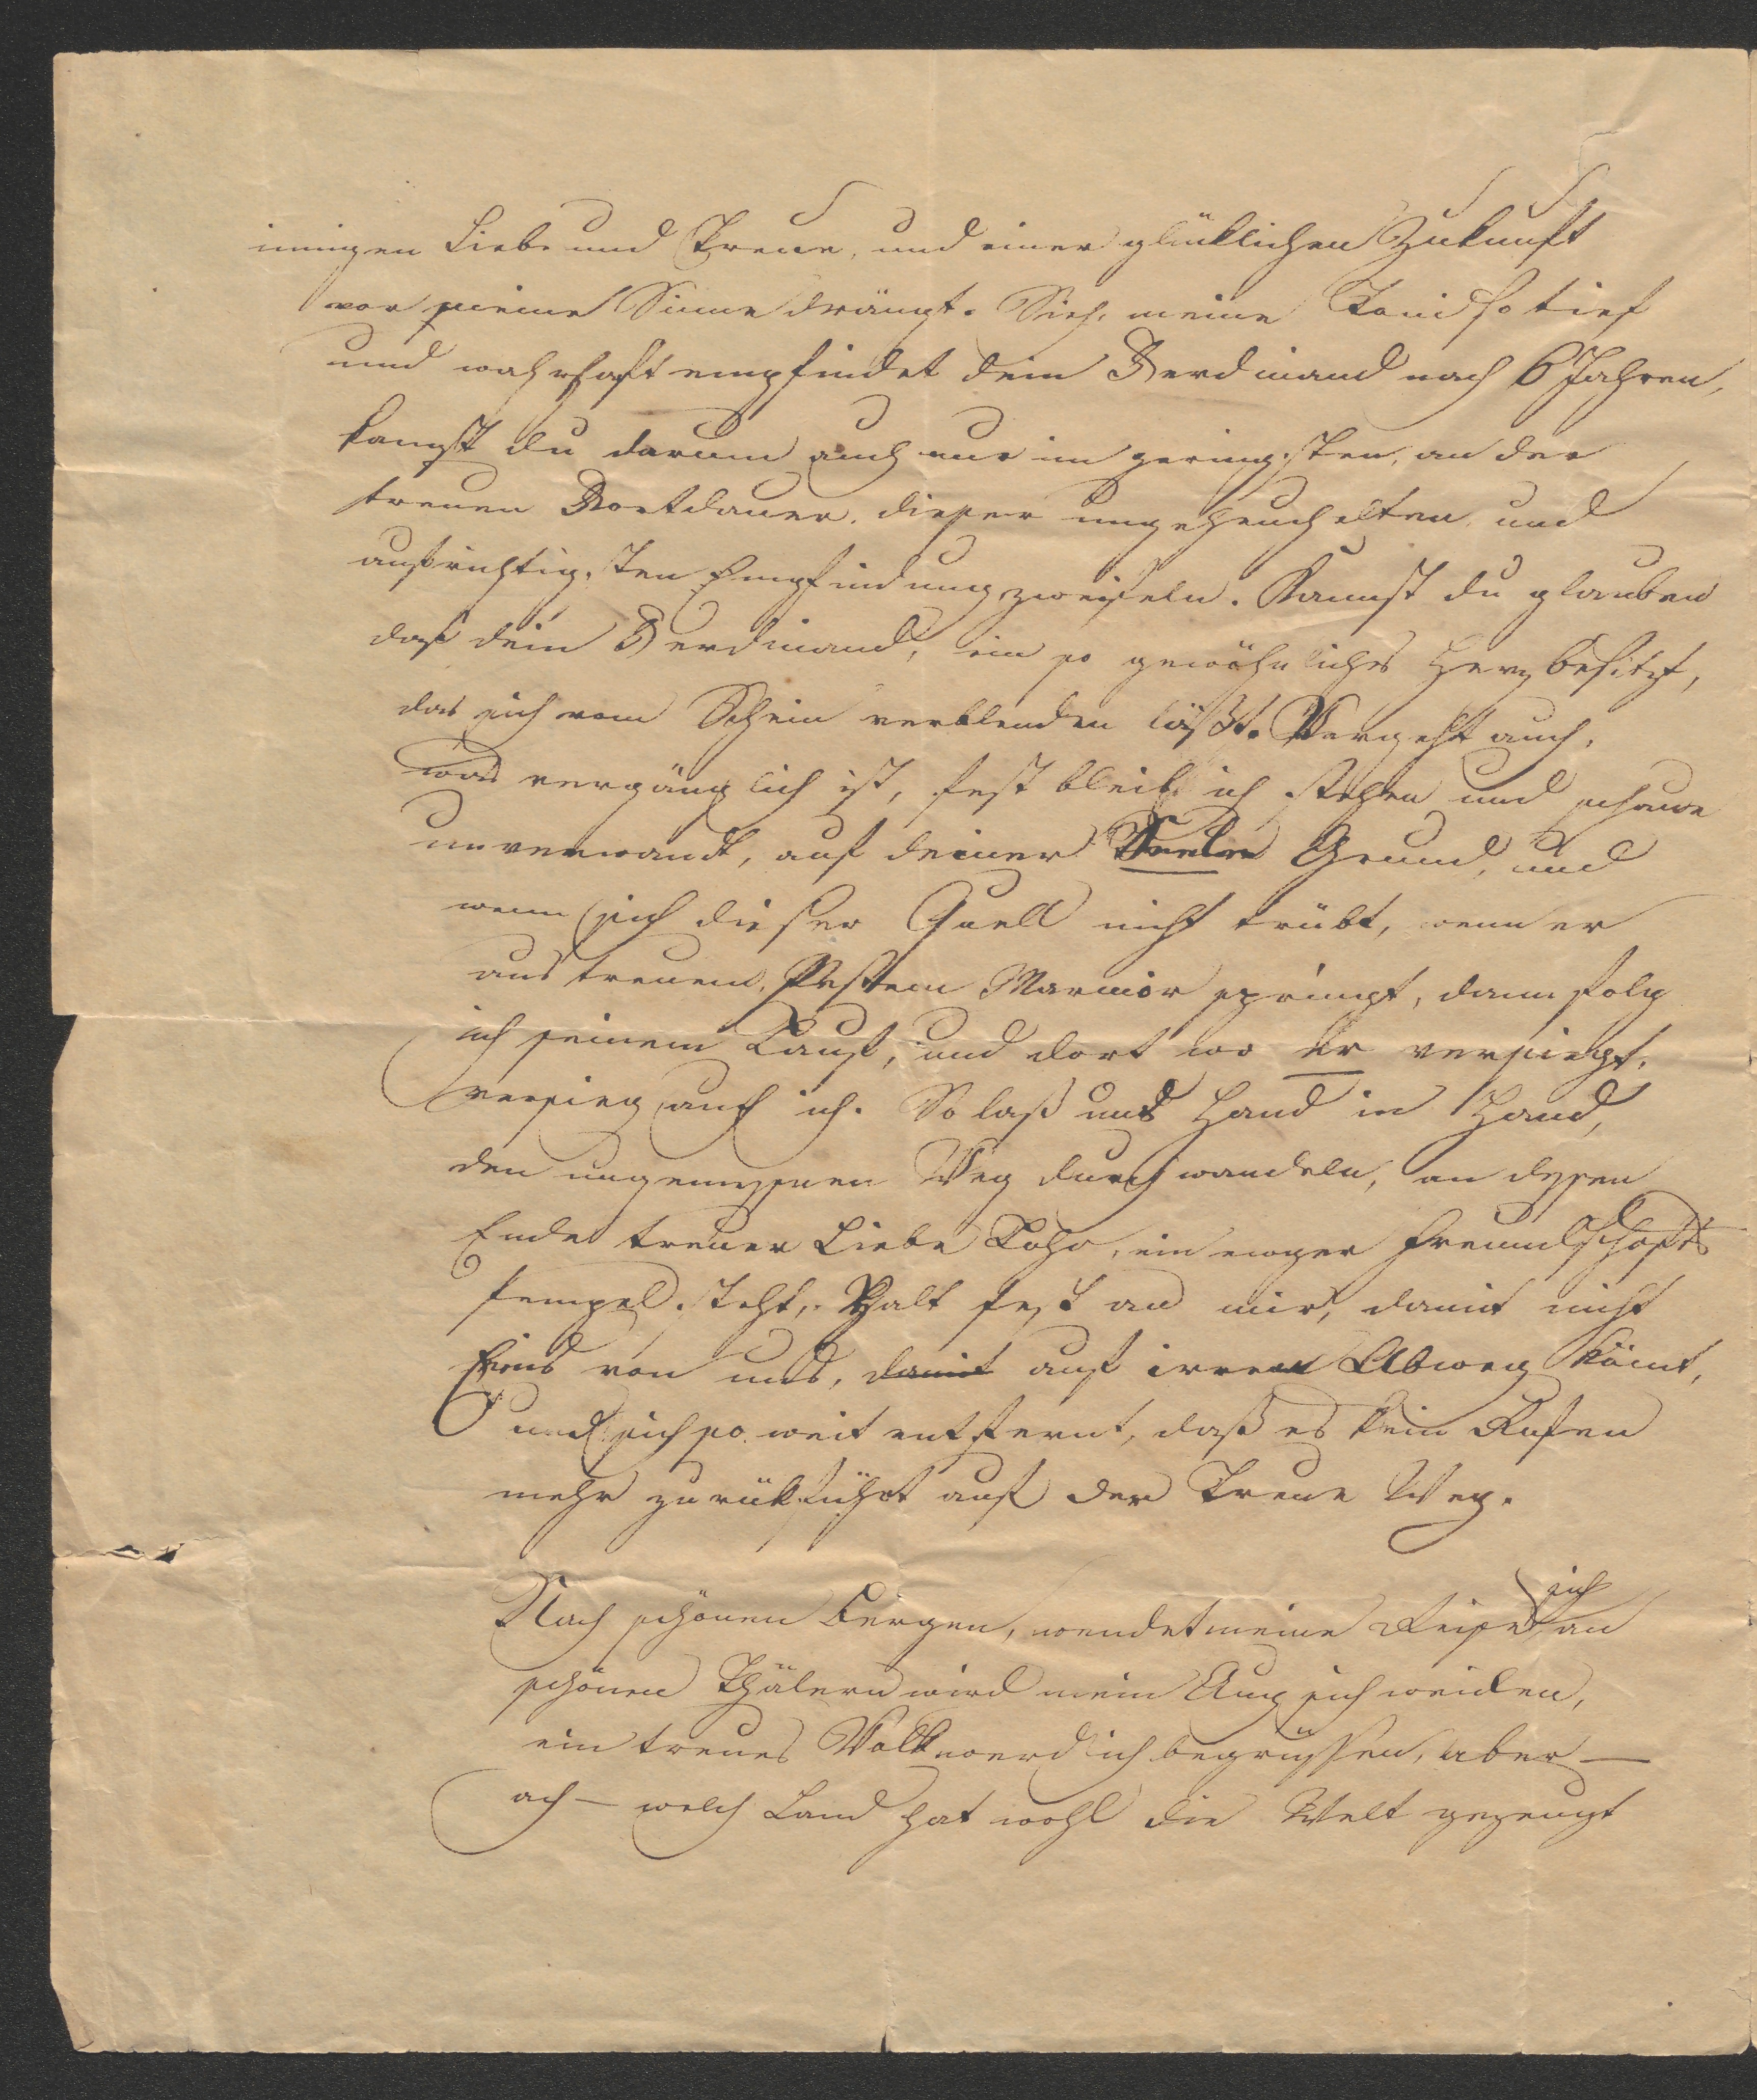 innigen Liebe und Treue, und einer glücklichen Zukunft
vor meine Sinne drängt. Sieh, meine Toni so tief
und wahrhaft empfindet dein Ferdinand nach 6 Jahren,
kanst du darum auch nur im geringsten, an der
treuen Fortdauer, dieser ungeheuchelten, und
aufrichtigsten Empfindung zweifeln. Kannst du glauben
daß dein Ferdinand, ein so gewöhnliches Herz besitzt,
das sich vom Schein verblenden läßt. Vergeht auch,
was vergänglich ist, fest bleib ich stehen und schaue
unverwandt, auf deiner Seele Grund, und
wenn sich dieser Quell nicht trübt, wenn er
aus treuem, festem Marmor springt, dann folg
ich seinem Lauf, und dort wo er versiegt,
versieg auch ich. So laß uns Hand in Hand,
den ungemessnen Weg durchwandeln, an dessen
Ende treuer Liebe Lohn, ein ewger Freundschafts
tempel steht, Halt fest an mir, damit nicht
Eins von uns, damit auf irren Abweg kömt,
und sich so weit entfernt, daß es kein Rufen
mehr zurükführt auf der Treue Weg.
Nach schönen Bergen, wendet meine Reise sich an
schönen Thälern wird mein Aug sich weiden,
ein treues Volk werd ich begrüssen, aber —
ach — welch Land hat wohl die Welt gezeugt